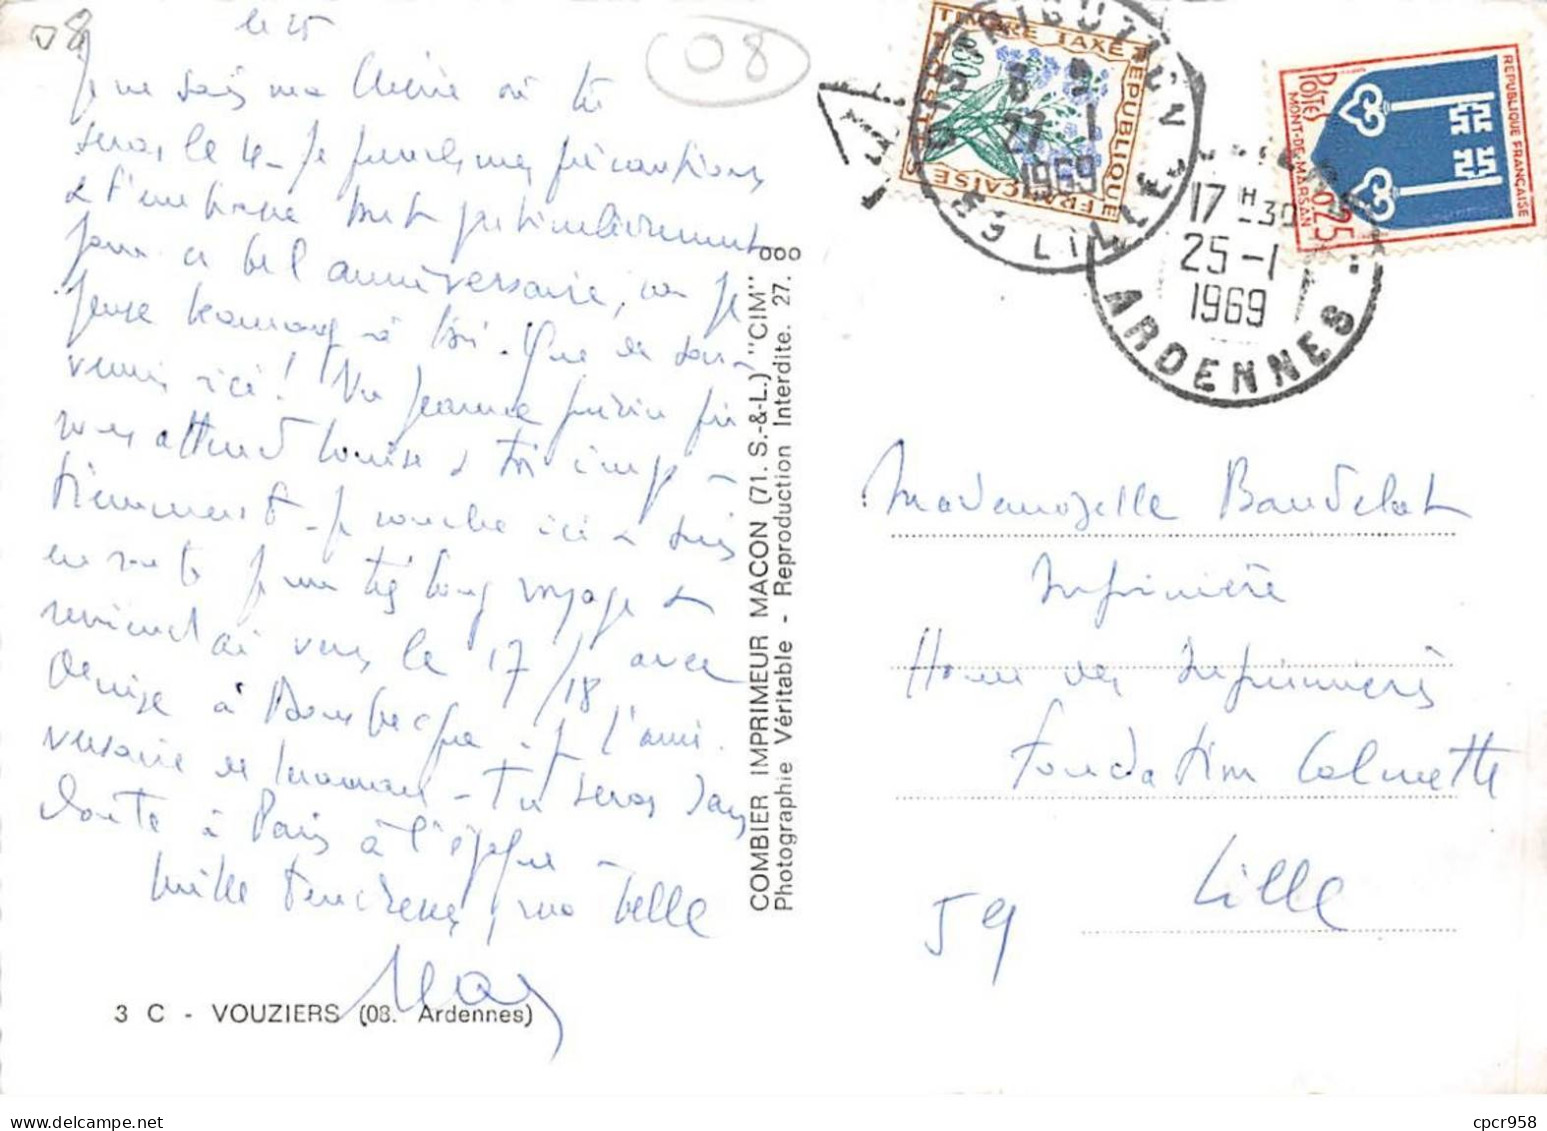 08
le 25
Je ne sais ma Chérie où tu
seras le 4 - Je prends mes précautions
& t'embrasse tout particulièrement
pour ce bel anniversaire, où je
pense beaucoup à toi. Que de sou-
venirs ici! Vu Jeanne
vous attend Louise & toi impa-
tiemment - Je couche ici & suis
en route pour très long voyage &
reviendrai vers le 17/18 avec
Denise à Bousbecque, pr l'anni-
versaire de maman - Tu seras sans
doute à Paris à l'époque -
Mille tendresses, ma belle
3 C - VOUZIERS (08. Ardennes)
COMBIER IMPRIMEUR MACON (71. S.-&-L.) "CIM"
Photographie Véritable - Reproduction Interdite. 27. 000
08
TIMBRE TAXE
REPUBLIQUE FRANÇAISE
POSTES
DISTRIBUTION
27-1
1969
59 LILLE
REPUBLIQUE FRANÇAISE
POSTES
MONT-DE-MARSAN
0,25
17H30
25-1
1969
ARDENNES
Mademoiselle Baudelot
Infirmière
Home des Infirmières
Fondation Calmette
Lille
59
cpcr958